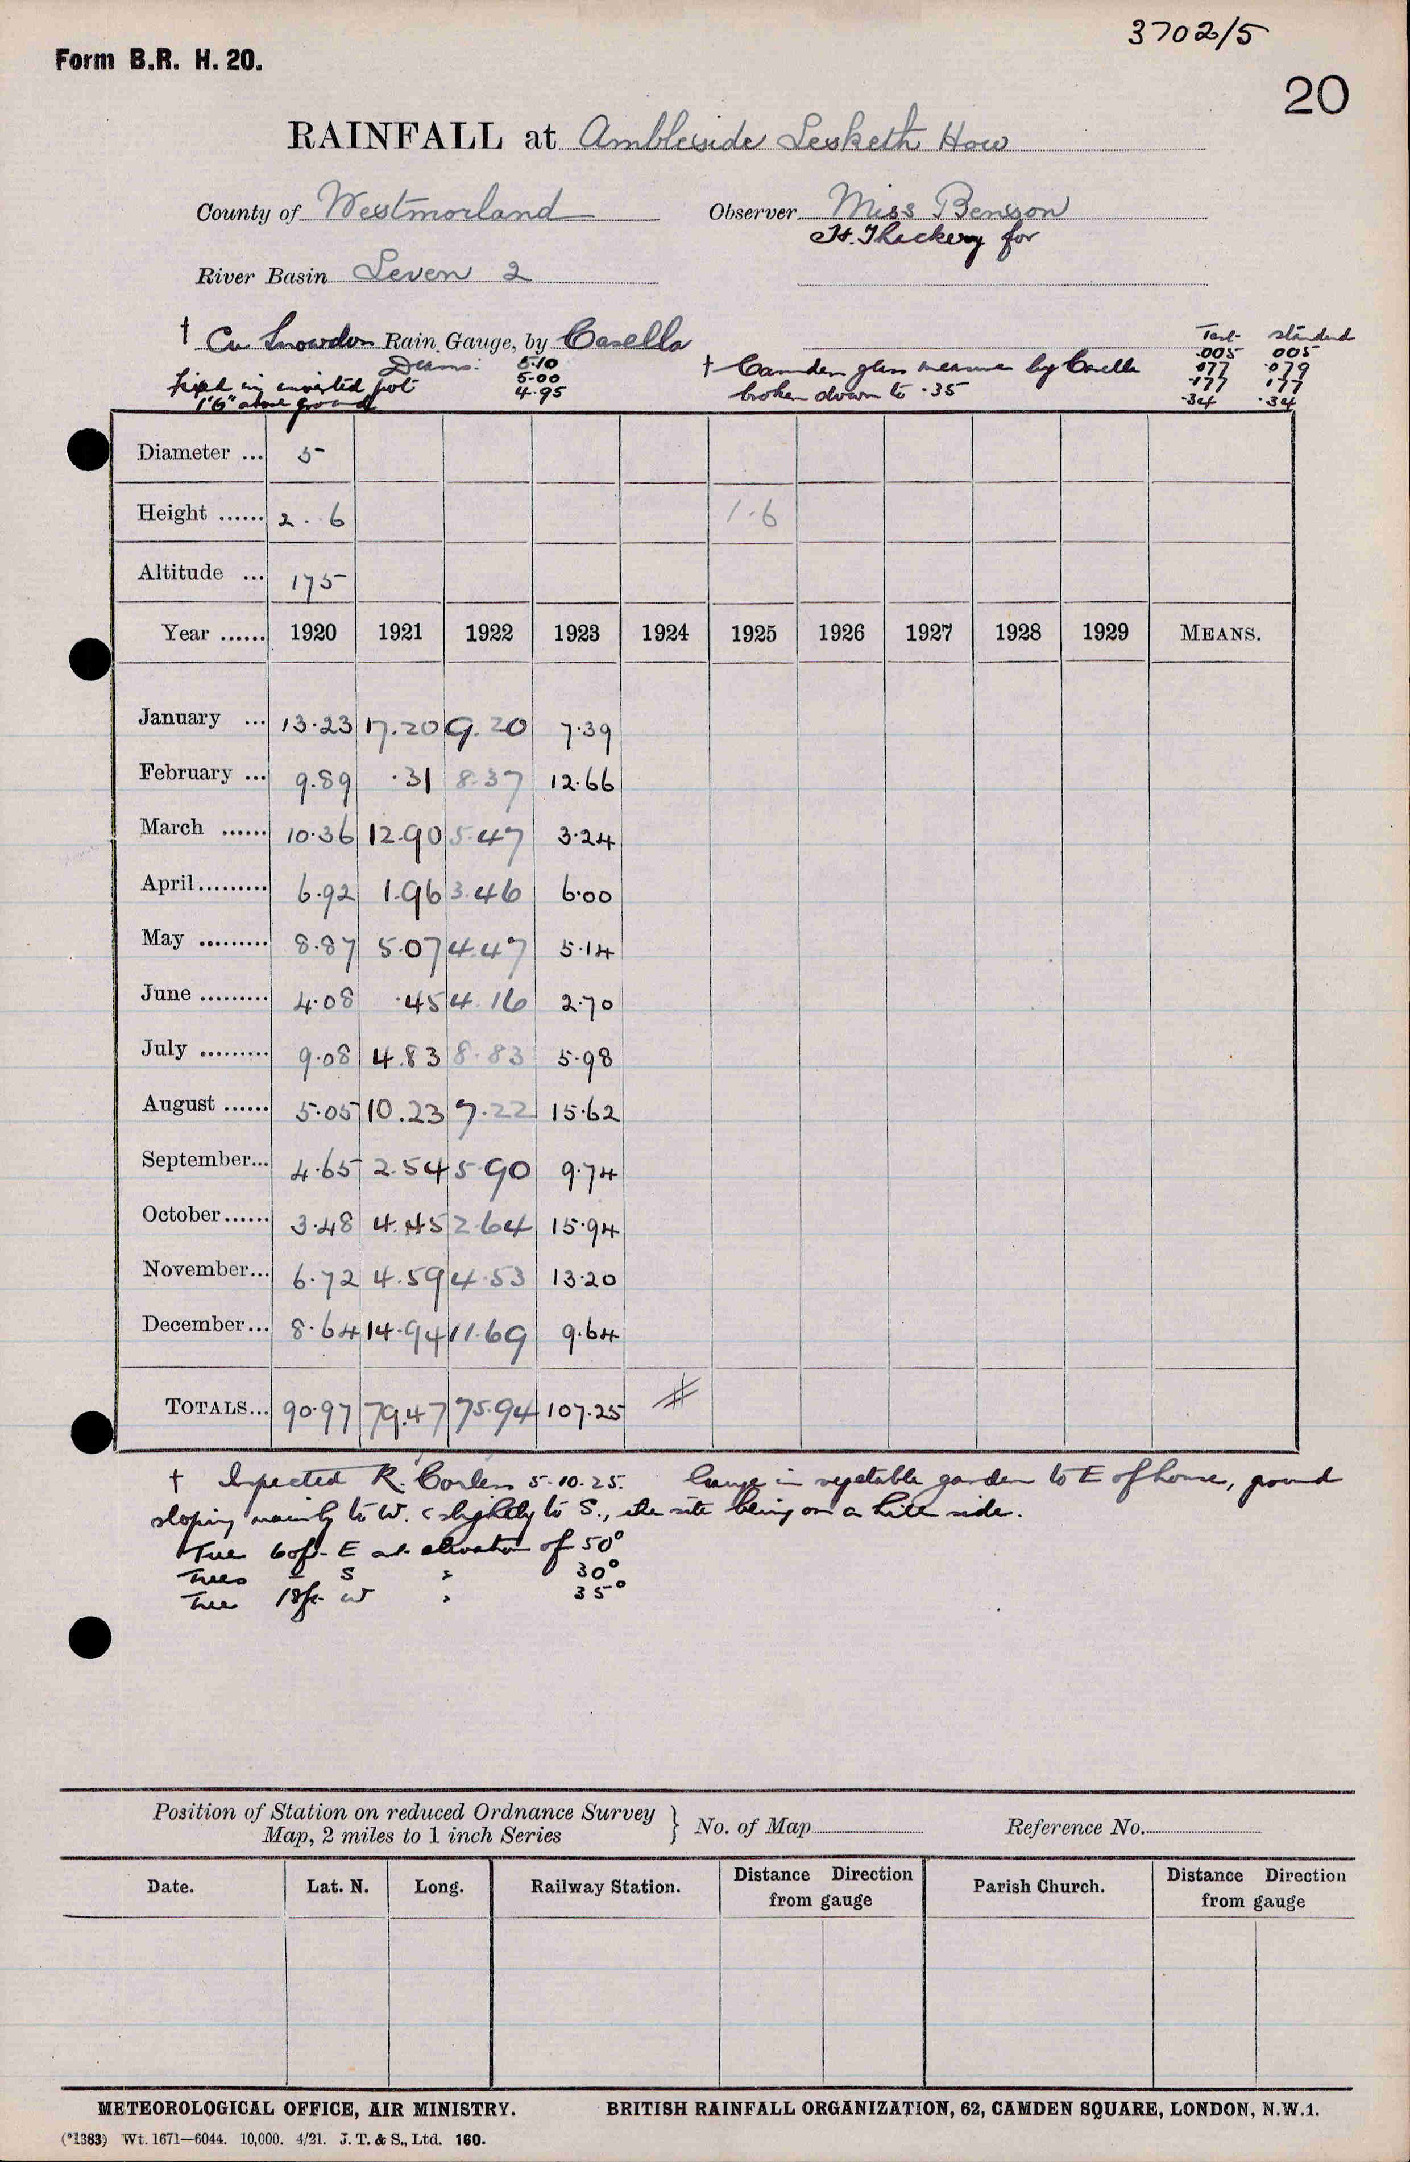 3702/5
Form B.R. H. 20.
20
RAINFALL at Ambleside Lesketh How
County of Westmorland Observer Miss Benson
H. Thackery for
River Basin Leven 2
† Cu Snowdon Rain Gauge, by Casella
Test standard
Diams. 5.10 † Camden glass measure by Casella .005 005
fixed in inverted pot 5.00 broken down to .35 .077 .079
1'6" above ground 4.95 .177 .177
.34 .34
Diameter ... 5
Height ...... 2. 6 1.6
Altitude ... 175
Year ...... 1920 1921 1922 1923 1924 1925 1926 1927 1928 1929 MEANS.
January ... 13.23 17.20 9.20 7.39
February ... 9.89 .31 8.37 12.66
March ...... 10.36 12.90 5.47 3.24
April......... 6.92 1.96 3.46 6.00
May ......... 8.87 5.07 4.47 5.14
June ......... 4.08 .45 4.16 2.70
July ......... 9.08 4.83 8.83 5.98
August ...... 5.05 10.23 7.22 15.62
September... 4.65 2.54 5.90 9.74
October...... 3.48 4.45 2.64 15.94
November... 6.72 4.59 4.53 13.20
December... 8.64 14.94 11.69 9.64
TOTALS... 90.97 79.47 75.94 107.25 #
† Inspected R. 5.10.25. Gauge in vegetable garden to E of house, ground
sloping mainly to W. & slightly to S., the site being on a hill side.
Tree 60ft. E at elevation of 50°
Trees — S " 30°
Tree 18ft. W " 35°
Position of Station on reduced Ordnance Survey
Map, 2 miles to 1 inch Series } No. of Map Reference No.
Date. Lat. N. Long. Railway Station. Distance Direction from gauge Parish Church. Distance Direction from gauge
METEOROLOGICAL OFFICE, AIR MINISTRY. BRITISH RAINFALL ORGANIZATION, 62, CAMDEN SQUARE, LONDON, N.W.1.
(*1383) Wt. 1671—6044. 10,000. 4/21. J. T. & S., Ltd. 160.